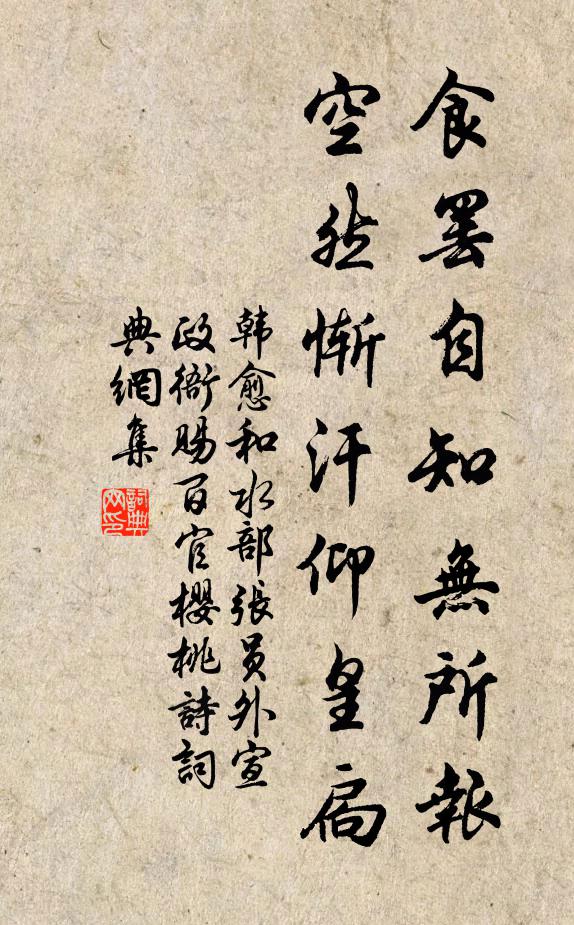 食罢自知無所報
空然慚汗仰皇扃
韩愈和水部張員外宣
政衙賜百官櫻桃詩詞
典網集
詞典
网印